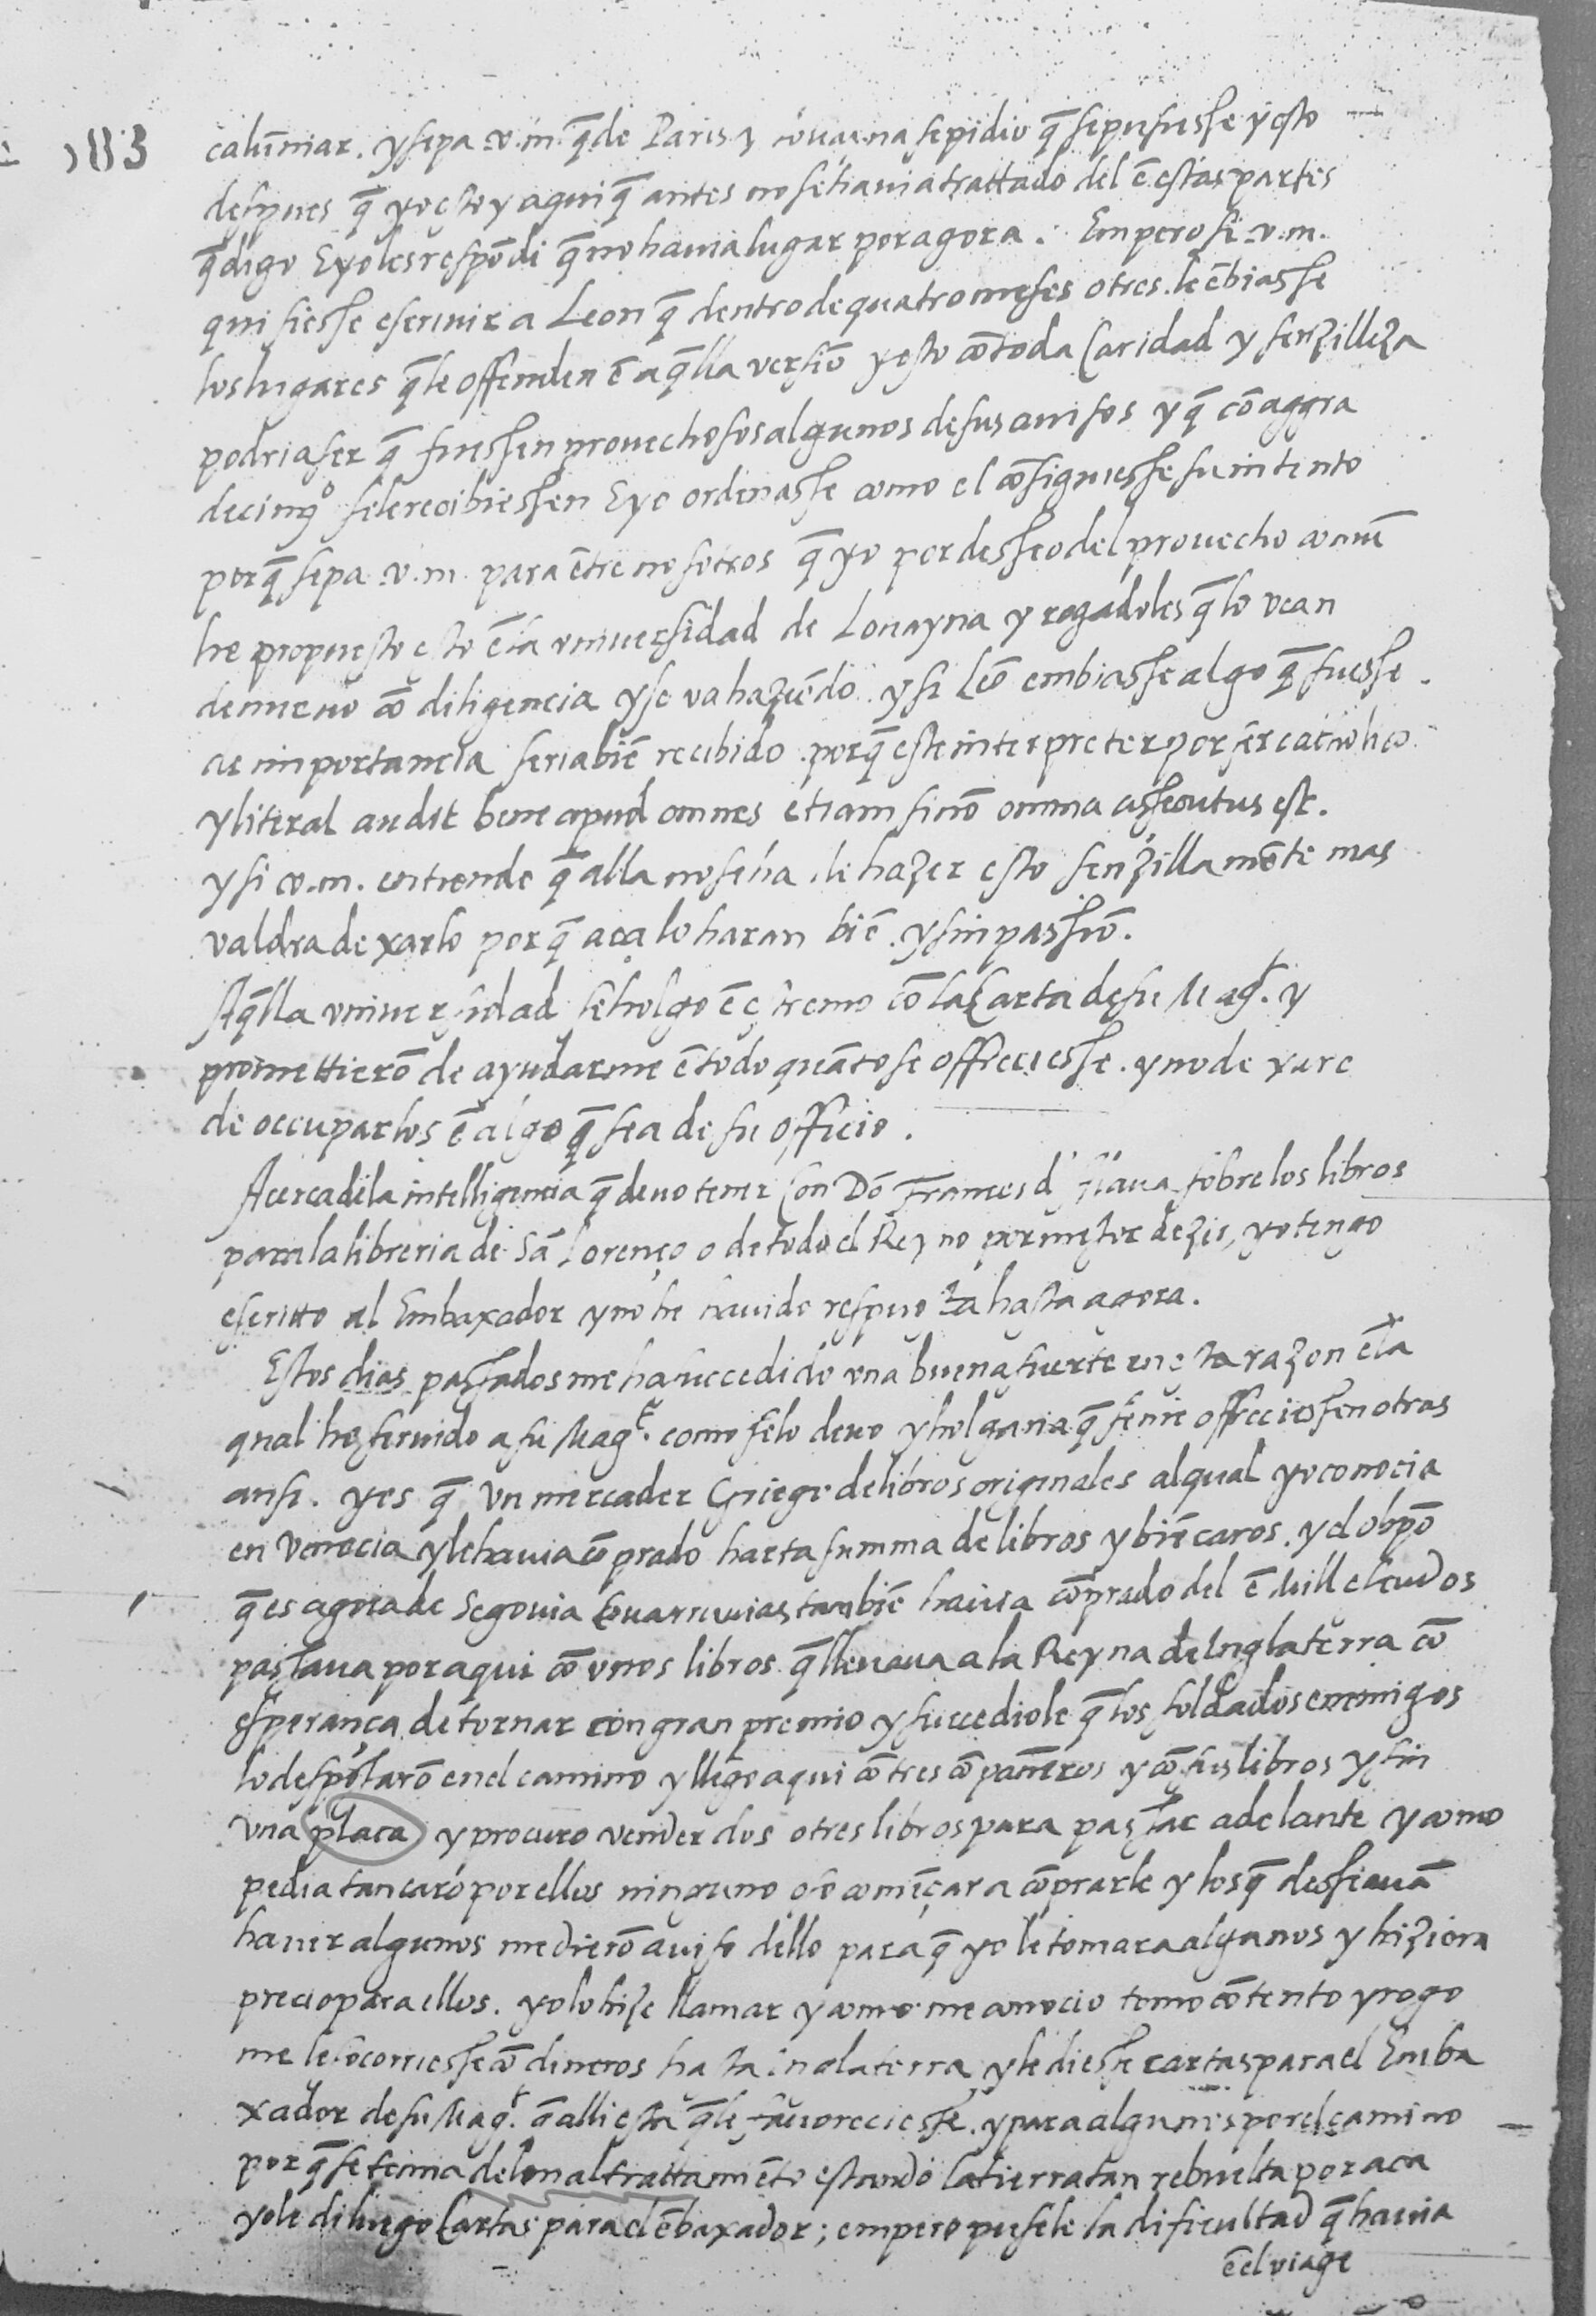 113
calūniar. y sepa .v.m. q̄ de Paris y Lovayna se pidio q̄ se pusiesse y esto
despues q̄ yo estoy aqui q̄ antes no se havia trattado del ē estas partes
q̄ digo E yo les respōdi q̄ no havia lugar por agora. Empero si .v.m.
quisiesse escrivir a Leon q̄ dentro de quatro meses o tres le ēbiasse
los lugares q̄ le offenden ē aq̄lla versiō y esto cō toda Caridad y senzilleza
podria ser q̄ fuessen provechosos algunos de sus avisos y q̄ cō aggra
decimᵒ se le recibiessen E yo ordenasse como el cōsiguiesse su intento
porq̄ sepa .v.m. para ētre nosotros q̄ yo por desseo del provecho comū
he propuesto esto ē la universidad de Lovayna y rogādoles q̄ lo vean
de nuevo cō diligencia y se va haziēdo. y si Leō embiasse algo q̄ fuesse
de importancia seria biē recibido. porq̄ este interprete por ser catholico
y literal audit bene apud omnes etiam si nō omnia assecutus est.
y si v.m. entiende q̄ alla no se ha de hazer esto senzillamēte mas
valdra dexarlo porq̄ aca lo haran biē. y sin passiō.
Aq̄lla universidad se holgo ē estremo cō la Carta de su Magᵗ. y
promettierō de ayudarme ē todo quāto se offreciesse. y no dexare
de occuparlos ē algo q̄ sea de su officio.
Acerca de la intelligencia q̄ devo tener Con Dō Frances d' Alava sobre los libros
para la libreria de Sā Lorenço o de todo el Reyno por mejor dezir, yo tengo
escritto al Embaxador y no he havido respuesta hasta agora.
Estos dias passados me ha succedido una buena suerte en esta razon ē la
qual he servido a su Magᵗ. como se lo devo y holgaria q̄ se me offreciessen otras
ansi. y es q̄ Un mercader Griego de libros originales al qual yo conocia
en Venecia y le havia cōprado harta summa de libros y biē caros. y el obpō
q̄ es agora de Segovia Covarruvias tanbiē havia cōprado del ē Mill escudos
passava por aqui cō unos libros q̄ llevava a la Reyna de Inglaterra cō
esperança de tornar con gran premio y succediole q̄ los soldados enemigos
lo despojarō en el camino y llego aqui cō tres cōpañeros y cō sus libros y sin
una placa y procuro vender dos o tres libros para passar adelante y como
pedia tan caro por ellos ninguno oso comēçar a cōprarle y los q̄ desseavā
haver algunos me dierō aviso dello para q̄ yo le tomara algunos y hiziera
precio para ellos. yo lo hize llamar y como me conocio tomo cōtento y rogo
me le socorriesse cō dineros hasta inglaterra y le diesse cartas para el Emba
xador de su Magᵗ. q̄ alli esta q̄ le favoreciesse. y para algunos por el camino
porq̄ se temia de lo mal trattamiēto estando la tierra tan rebuelta por aca
yo le di luego Cartas para el ēbaxador; empero pusele la dificultad q̄ havia
ē el viage